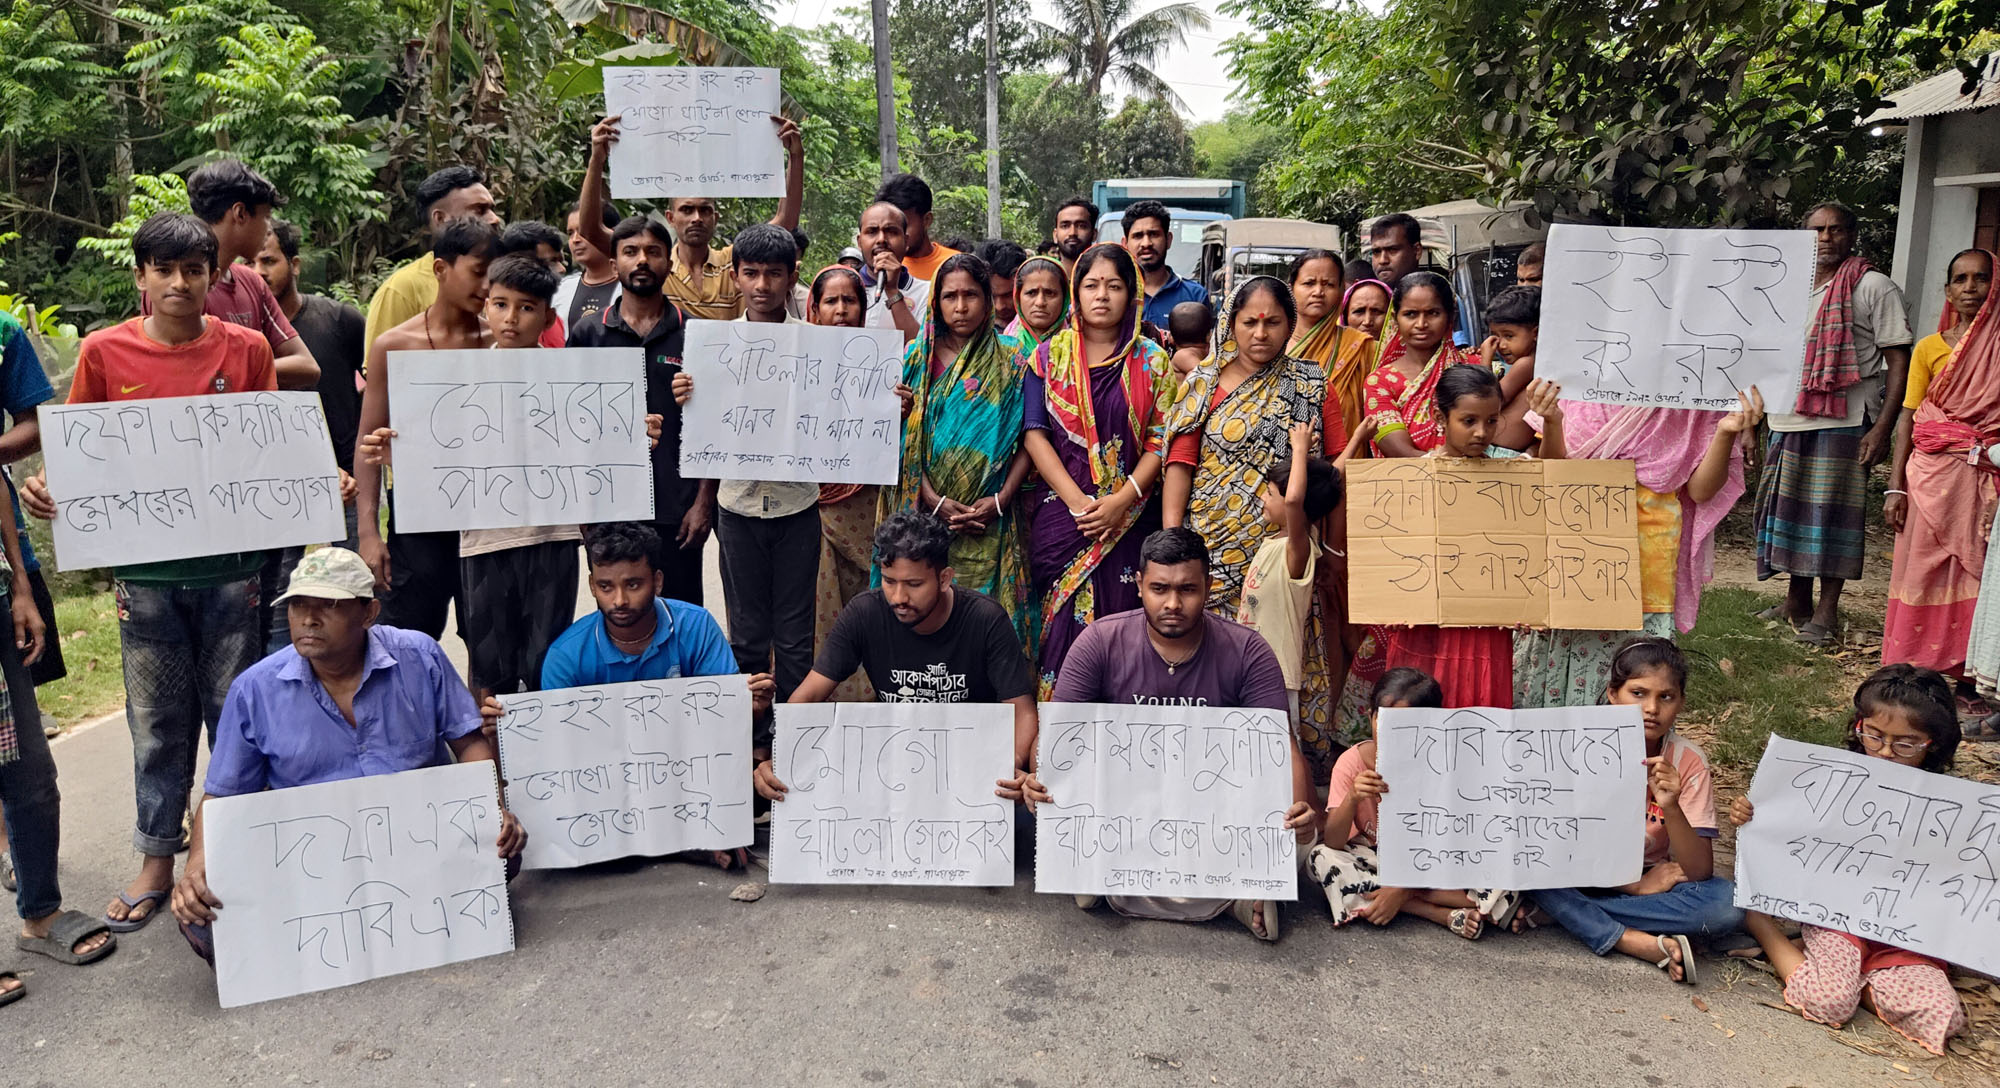 হই হই রই রই
মোগো ঘাটলা গেল
কই
প্রচারে: ৯ নং ওয়ার্ড, রাজাপুর
দফা এক দাবি এক
মেম্বরের পদত্যাগ
মেম্বরের
পদত্যাগ
ঘাটলার দুর্নীতি
মানব না, মানব না,
৯ নং ওয়ার্ড
হই হই
রই রই
প্রচারে: ৯ নং ওয়ার্ড, রাজাপুর
দুর্নীতি বাজ মেম্বর
ঠাই নাই ঠাই নাই
দফা এক
দাবি এক
হই হই রই রই
মোগো ঘাটলা
গেলো কই
আমি
আকাশ পাঠাব
তোমার
মনের
YOUNG
মোগো
ঘাটলা গেল কই
প্রচারে: ৯ নং ওয়ার্ড, রাজাপুর
মেম্বরের দুর্নীতি
ঘাটলা গেল তার বাড়ি
প্রচারে: ৯ নং ওয়ার্ড, রাজাপুর
দাবি মোদের
একটাই
ঘাটলা মোদের
ফেরত চাই।
ঘাটলার
মানি না
না
প্রচারে- ৯ নং ওয়ার্ড